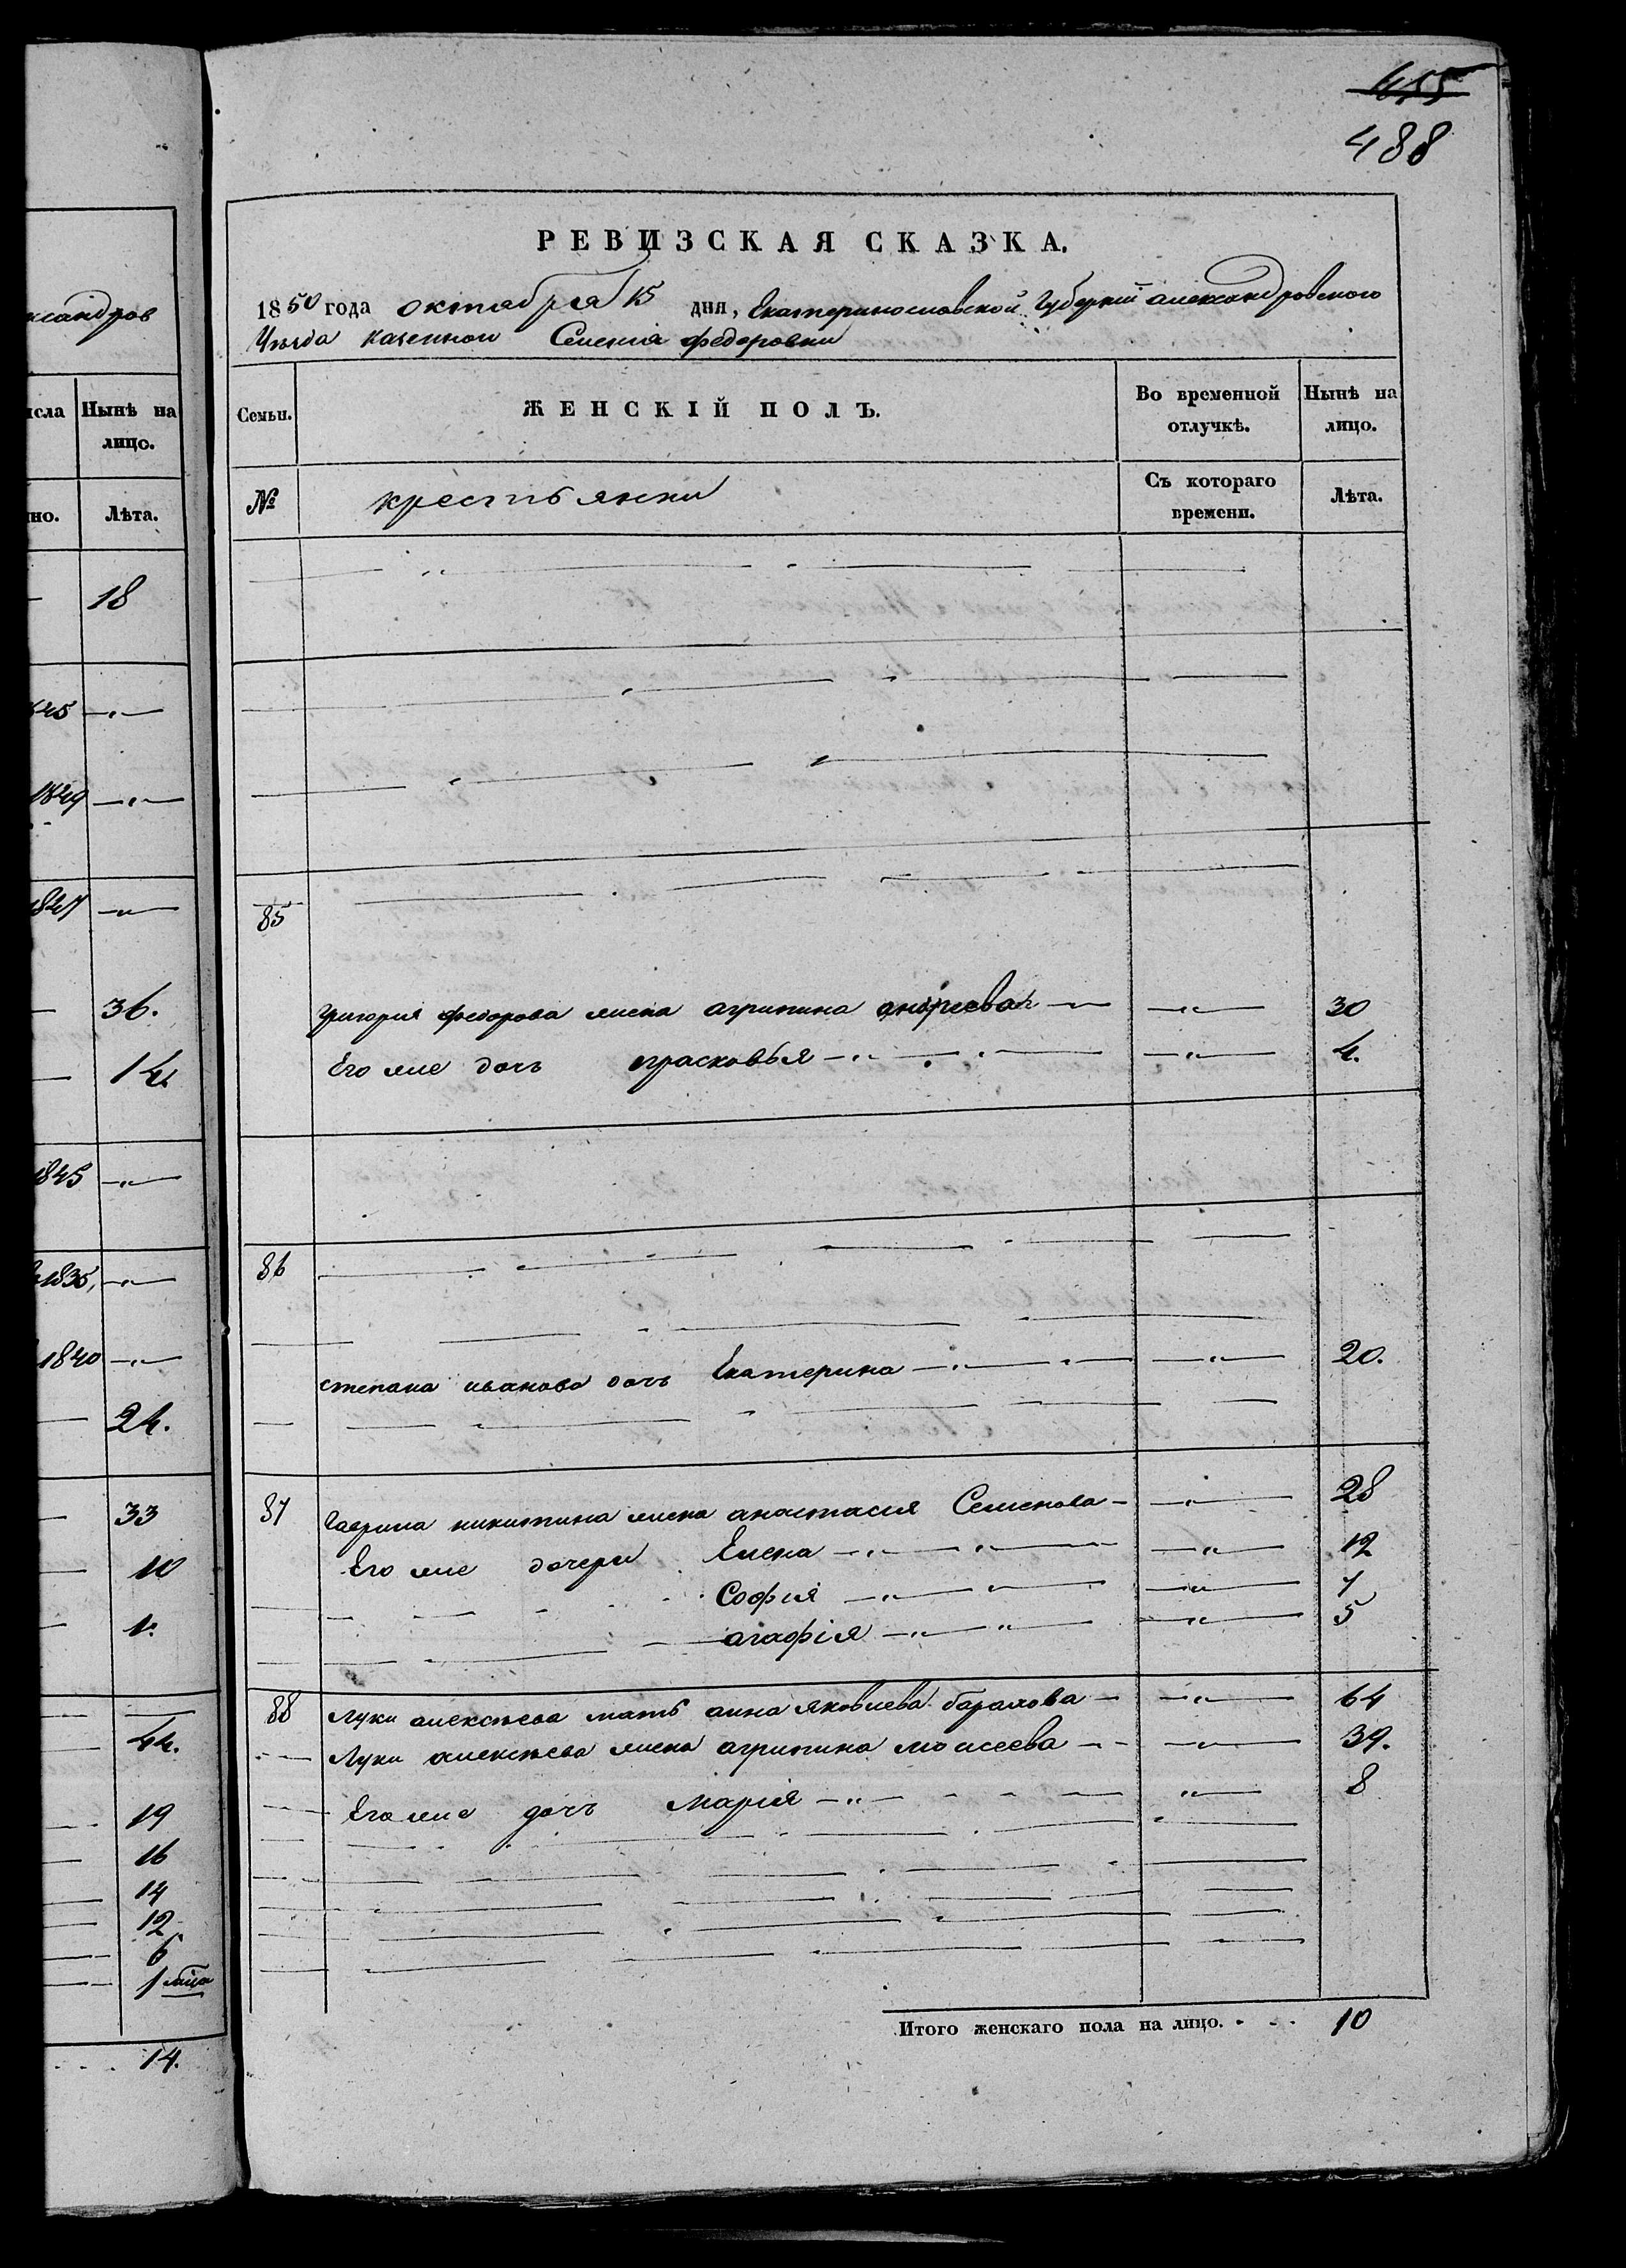 ксандров
исла Нынѣ на
лицо.
но. Лѣта.
18
1849
1847
36.
14
1845
1835,
1840
24.
33
10
1.
44.
19
16
14
12
6
14.
455
488
РЕВИЗСКАЯ СКАЗКА.
1850 года октября 15 дня, Екатеринославской Губернiи александровского
Уѣзда казенном Селенiя федоровки
Семьи. ЖЕНСКIЙ ПОЛЪ. Во временной отлучкѣ. Нынѣ на лицо.
№ крестьянки Съ котораго времени. Лѣта.
85
григория федорова жена агрипина андреева 30
Его же дочь прасковья 4.
86
степана иванова дочь Екатерина 20.
87 Гаврила никитина жена анастасия Семенова 28
Его же дочери Елена 12
София 7
агафiя 5
88 Луки алексѣева мать анна яковлева 64
Луки алексѣева жена агрипина моисеева 39.
Его же дочь марiя 8
Итого женскаго пола на лицо. 10